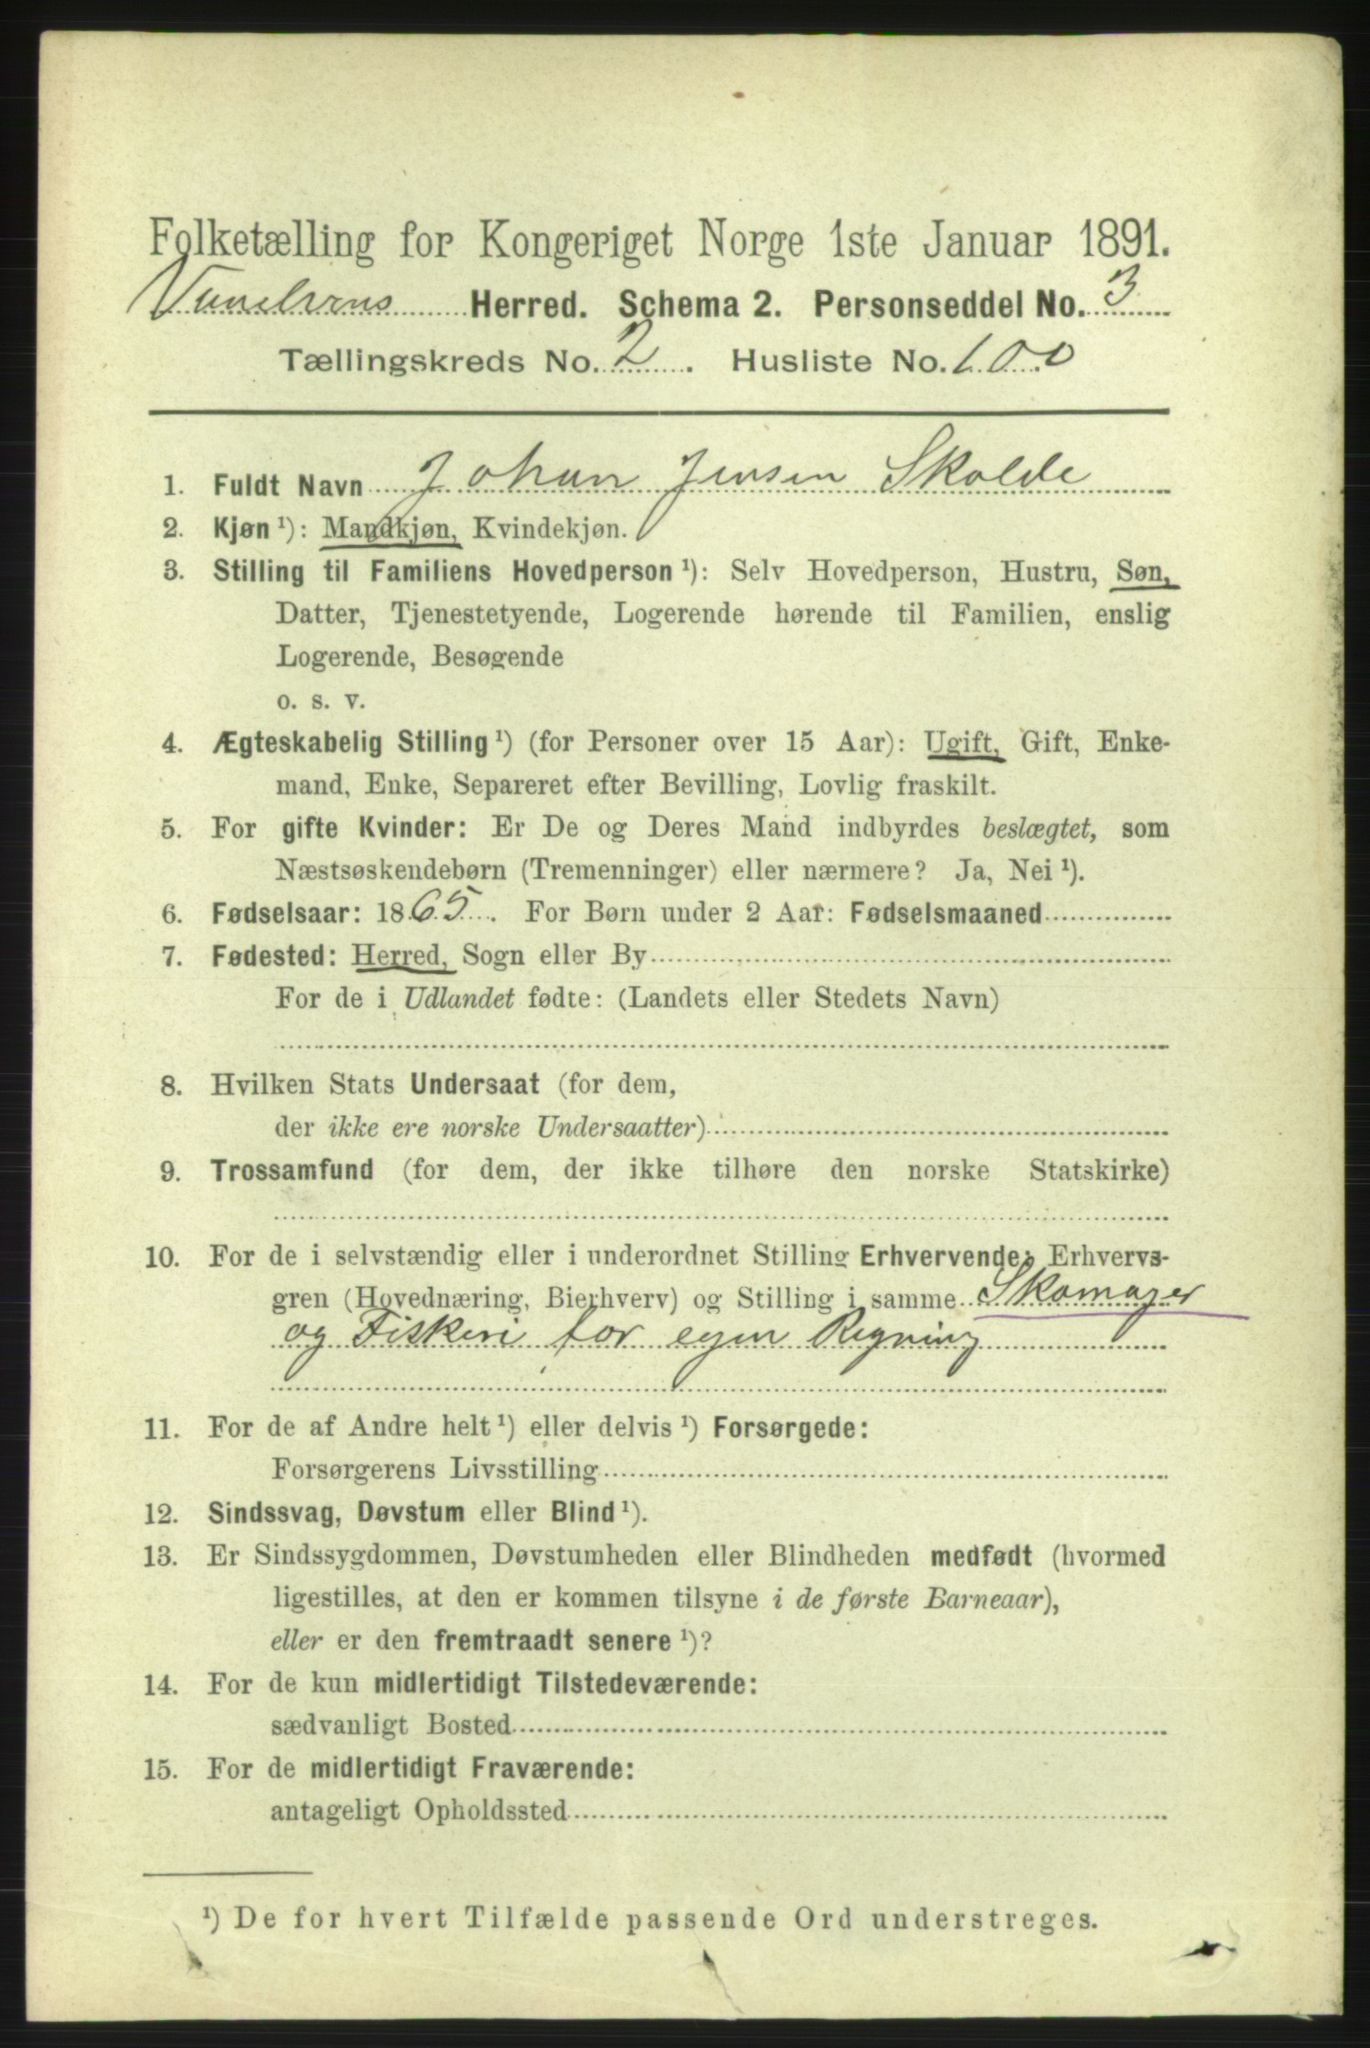 Folketælling for Kongeriget Norge 1ste Januar 1891.
Vanelvens Herred. Schema 2. Personseddel No. 3
Tællingskreds No. 2. Husliste No. 100
1. Fuldt Navn Johan Jensen Skolde
2. Kjøn ¹): Mandkjøn, Kvindekjøn.
3. Stilling til Familiens Hovedperson ¹): Selv Hovedperson, Hustru, Søn,
Datter, Tjenestetyende, Logerende hørende til Familien, enslig
Logerende, Besøgende
o. s. v.
4. Ægteskabelig Stilling ¹) (for Personer over 15 Aar): Ugift, Gift, Enke-
mand, Enke, Separeret efter Bevilling, Lovlig fraskilt.
5. For gifte Kvinder: Er De og Deres Mand indbyrdes beslægtet, som
Næstsøskendebørn (Tremenninger) eller nærmere? Ja, Nei ¹).
6. Fødselsaar: 1865. For Børn under 2 Aar: Fødselsmaaned
7. Fødested: Herred, Sogn eller By
For de i Udlandet fødte: (Landets eller Stedets Navn)
8. Hvilken Stats Undersaat (for dem,
der ikke ere norske Undersaatter)
9. Trossamfund (for dem, der ikke tilhøre den norske Statskirke)
10. For de i selvstændig eller i underordnet Stilling Erhvervende: Erhvervs-
gren (Hovednæring, Bierhverv) og Stilling i samme Skomager
og Fiskeri for egen Regning
11. For de af Andre helt ¹) eller delvis ¹) Forsørgede:
Forsørgerens Livsstilling
12. Sindssvag, Døvstum eller Blind ¹).
13. Er Sindssygdommen, Døvstumheden eller Blindheden medfødt (hvormed
ligestilles, at den er kommen tilsyne i de første Barneaar),
eller er den fremtraadt senere ¹)?
14. For de kun midlertidigt Tilstedeværende:
sædvanligt Bosted
15. For de midlertidigt Fraværende:
antageligt Opholdssted
¹) De for hvert Tilfælde passende Ord understreges.